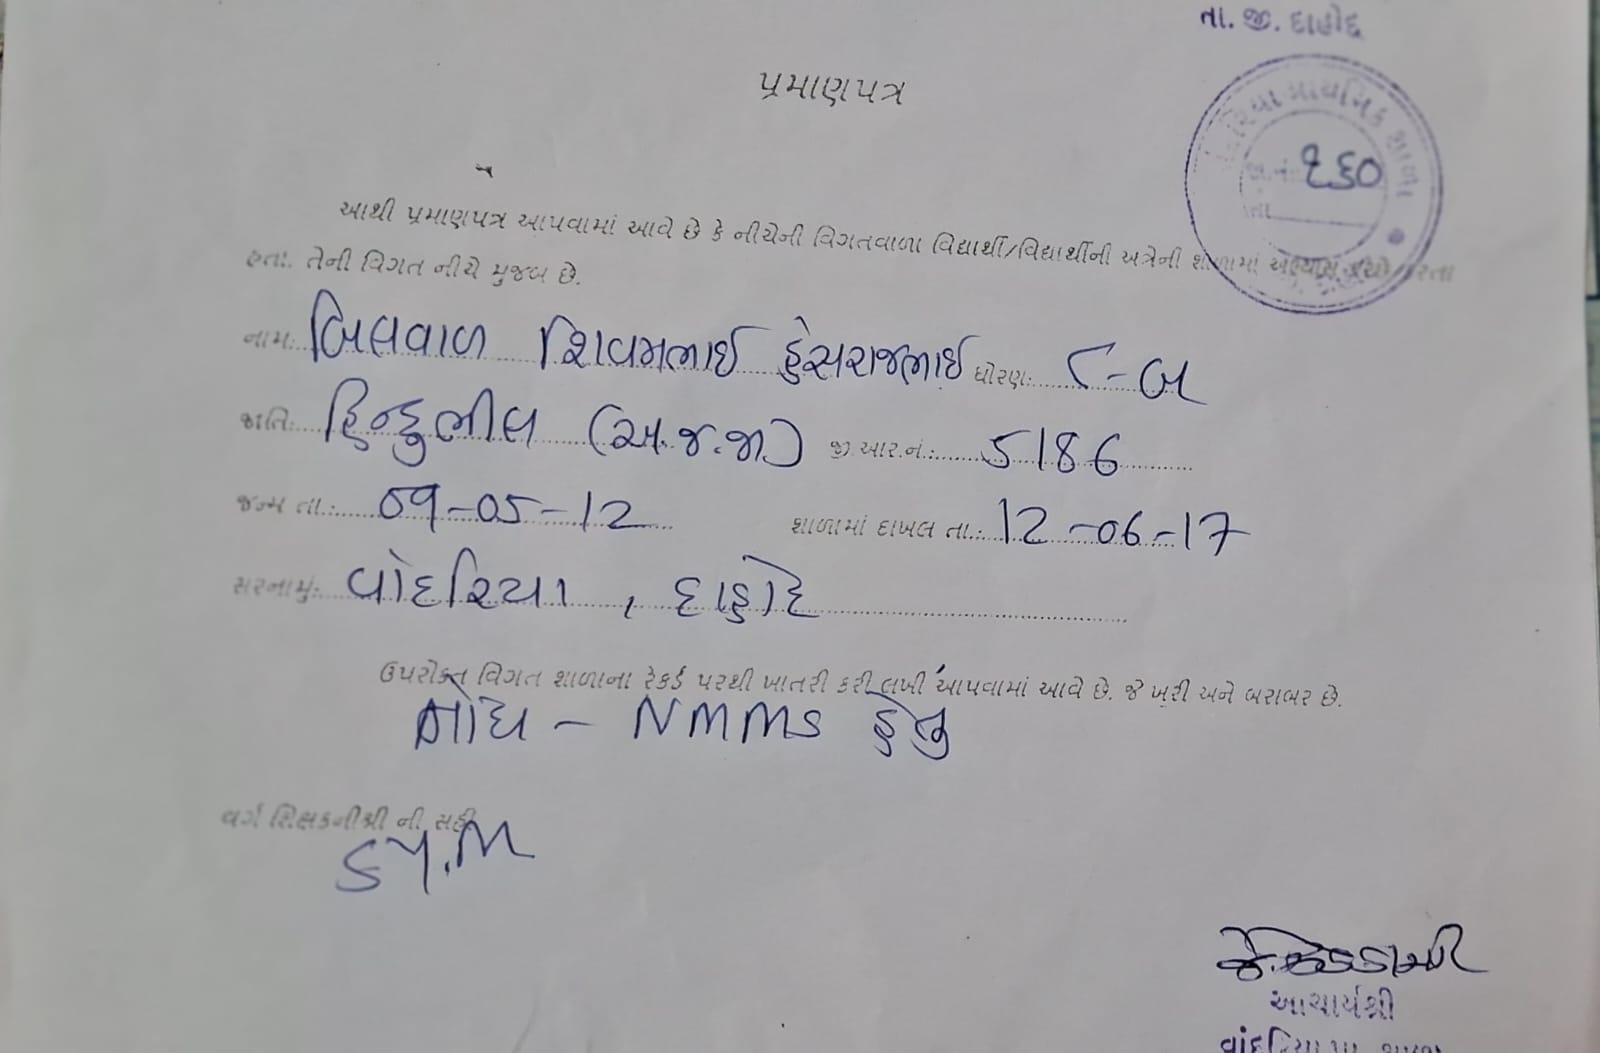 તા. જી. દાહોદ
પ્રમાણપત્ર
પ્રાથમિક શાળા
૬૩૦
આથી પ્રમાણપત્ર આપવામાં આવે છે કે નીચેની વિગતવાળા વિદ્યાર્થી/વિદ્યાર્થીની અત્રેની શાળામાં અભ્યાસ કરતા
હતા. તેની વિગત નીચે મુજબ છે.
નામ: બિલવાળ શિવમભાઈ હંસરાજભાઈ ધોરણ: ૮-બ
જાતિ: હિન્દુભીલ (અ.જ.જા) જી.આર.નં.: 5186
જન્મ તા.: 09-05-12 શાળામાં દાખલ તા.: 12-06-17
સરનામું: વાંદરિયા, દાહોદ
ઉપરોક્ત વિગત શાળાના રેકર્ડ પરથી ખાતરી કરી લખી આપવામાં આવે છે. જે ખરી અને બરાબર છે.
નોંધ - NMMS હેતુ
વર્ગ શિક્ષકનીશ્રી ની સહી
આચાર્યશ્રી